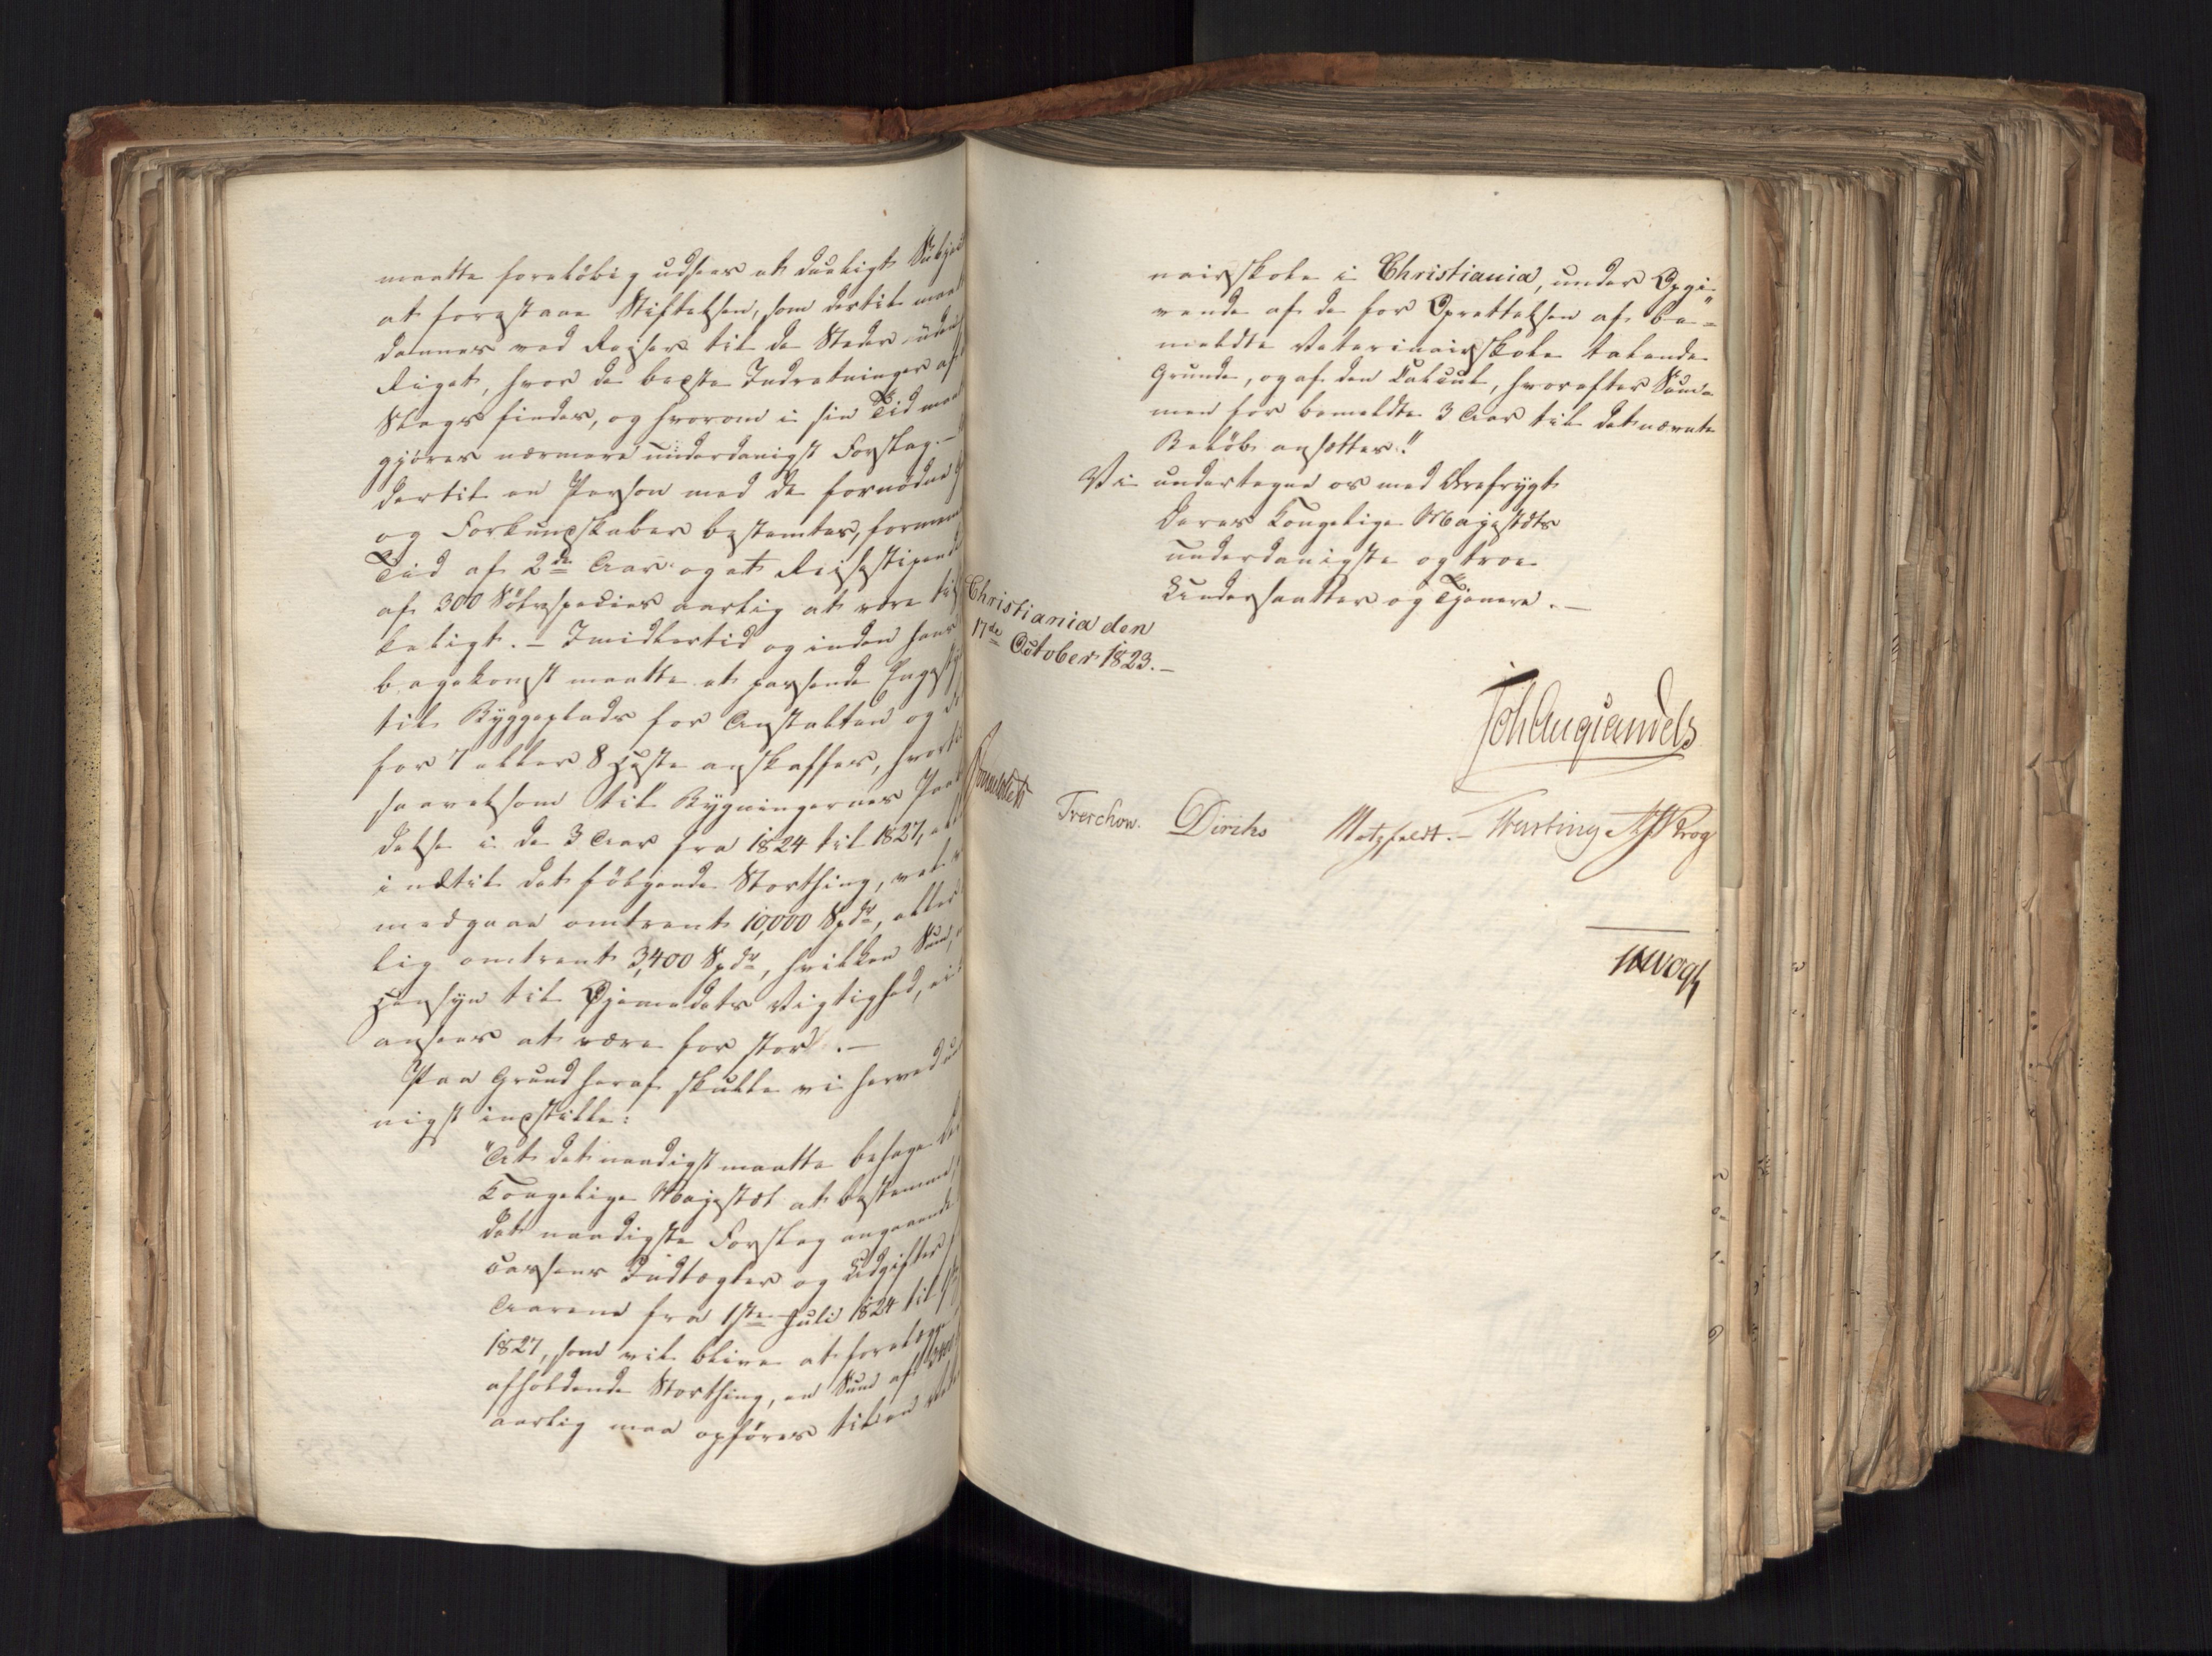 maatte foreløbig udsees et dueligt Subject
at forestaae Stiftelsen, som dertil maatte
dannes ved Reiser til de Steder uden
Riget, hvor de bedste Indretninger af
Slags findes, og hvorom i sin Tid maatte
gjøres nærmere underdanigst Forslag. –
Dertil en Person med de fornødne
og Forkundskaber bestemtes, formenes
Tid af 2de Aar og et Reisestipendium
af 300 Sølvspecies aarlig at være til
keligt. – Imidlertid og inden hans
bagekomst maatte et passende
til Byggeplads for Anstalten og
for 7 eller 8 Heste anskaffes, hvortil
saavelsom til Bygningernes
delse i de 3 Aar fra 1824 til 1827, eller
indtil det følgende Storthing, vel
medgaae omtrent 10,000 Spdr, eller
lig omtrent 3,400 Spdr, hvilken Sum,
Hensyn til Øjemedets Vigtighed, ei
ansees at være for stor. –
Paa Grund heraf skulle vi herved
nigst indstille:
"At det naadigst maatte behage
Kongelige Majestæt at bestemme,
det naadigste Forslag angaaende
cassens Indtægter og Udgifter
Aarene fra 1ste Juli 1824 til
1827, som vil blive at forelægge
afholdende Storthing, en Sum af 3400
aarlig maa opføres til en
nairskole i Christiania, under Opgi-
vende af de for Oprettelsen af be-
meldte Veterinairskole talende
Grunde, og af den Calcul, hvorefter Sum-
men for bemeldte 3 Aar til det nævnte
Beløb ansættes."
Vi undertegne os med Ærefrygt
Deres Kongelige Majestæts
underdanigste og troe
Undersaatter og Tjenere. –
Christiania den
17de October 1823. –
Joh Aug Sandels
Sommerfeldt
Treschow. Diriks Motzfeldt. – Fasting Krog
Vogt